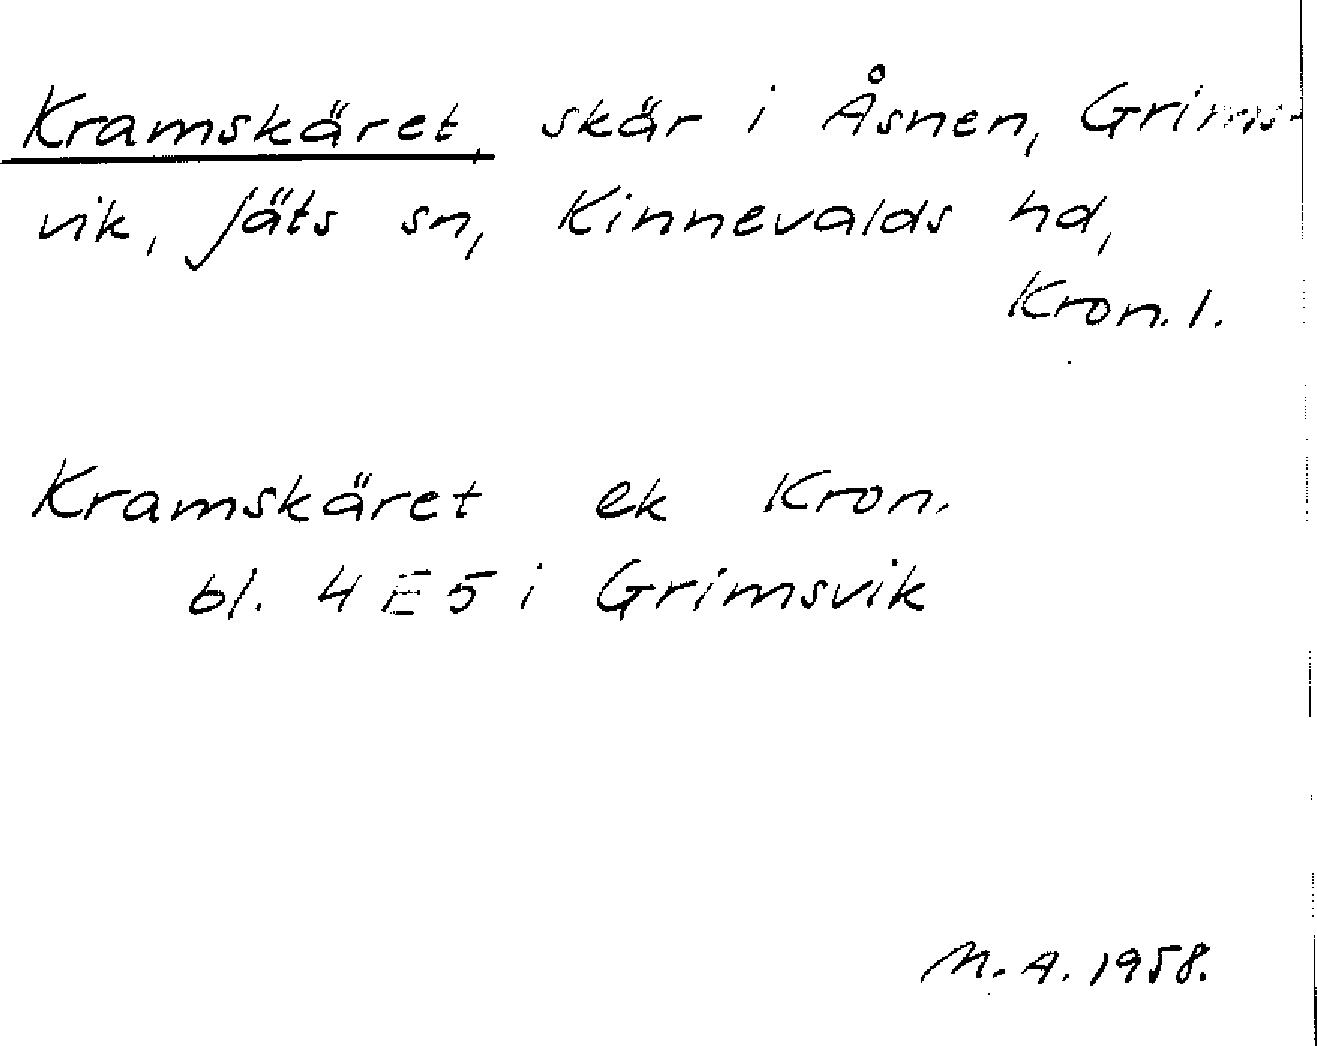 Kramskäret, skär i Åsnen, Grims-
vik, Jäts sn, Kinnevalds hd,
Kron. l.
Kramskäret ek Kron.
bl. 4 E 5 i Grimsvik
M. A. 1958.